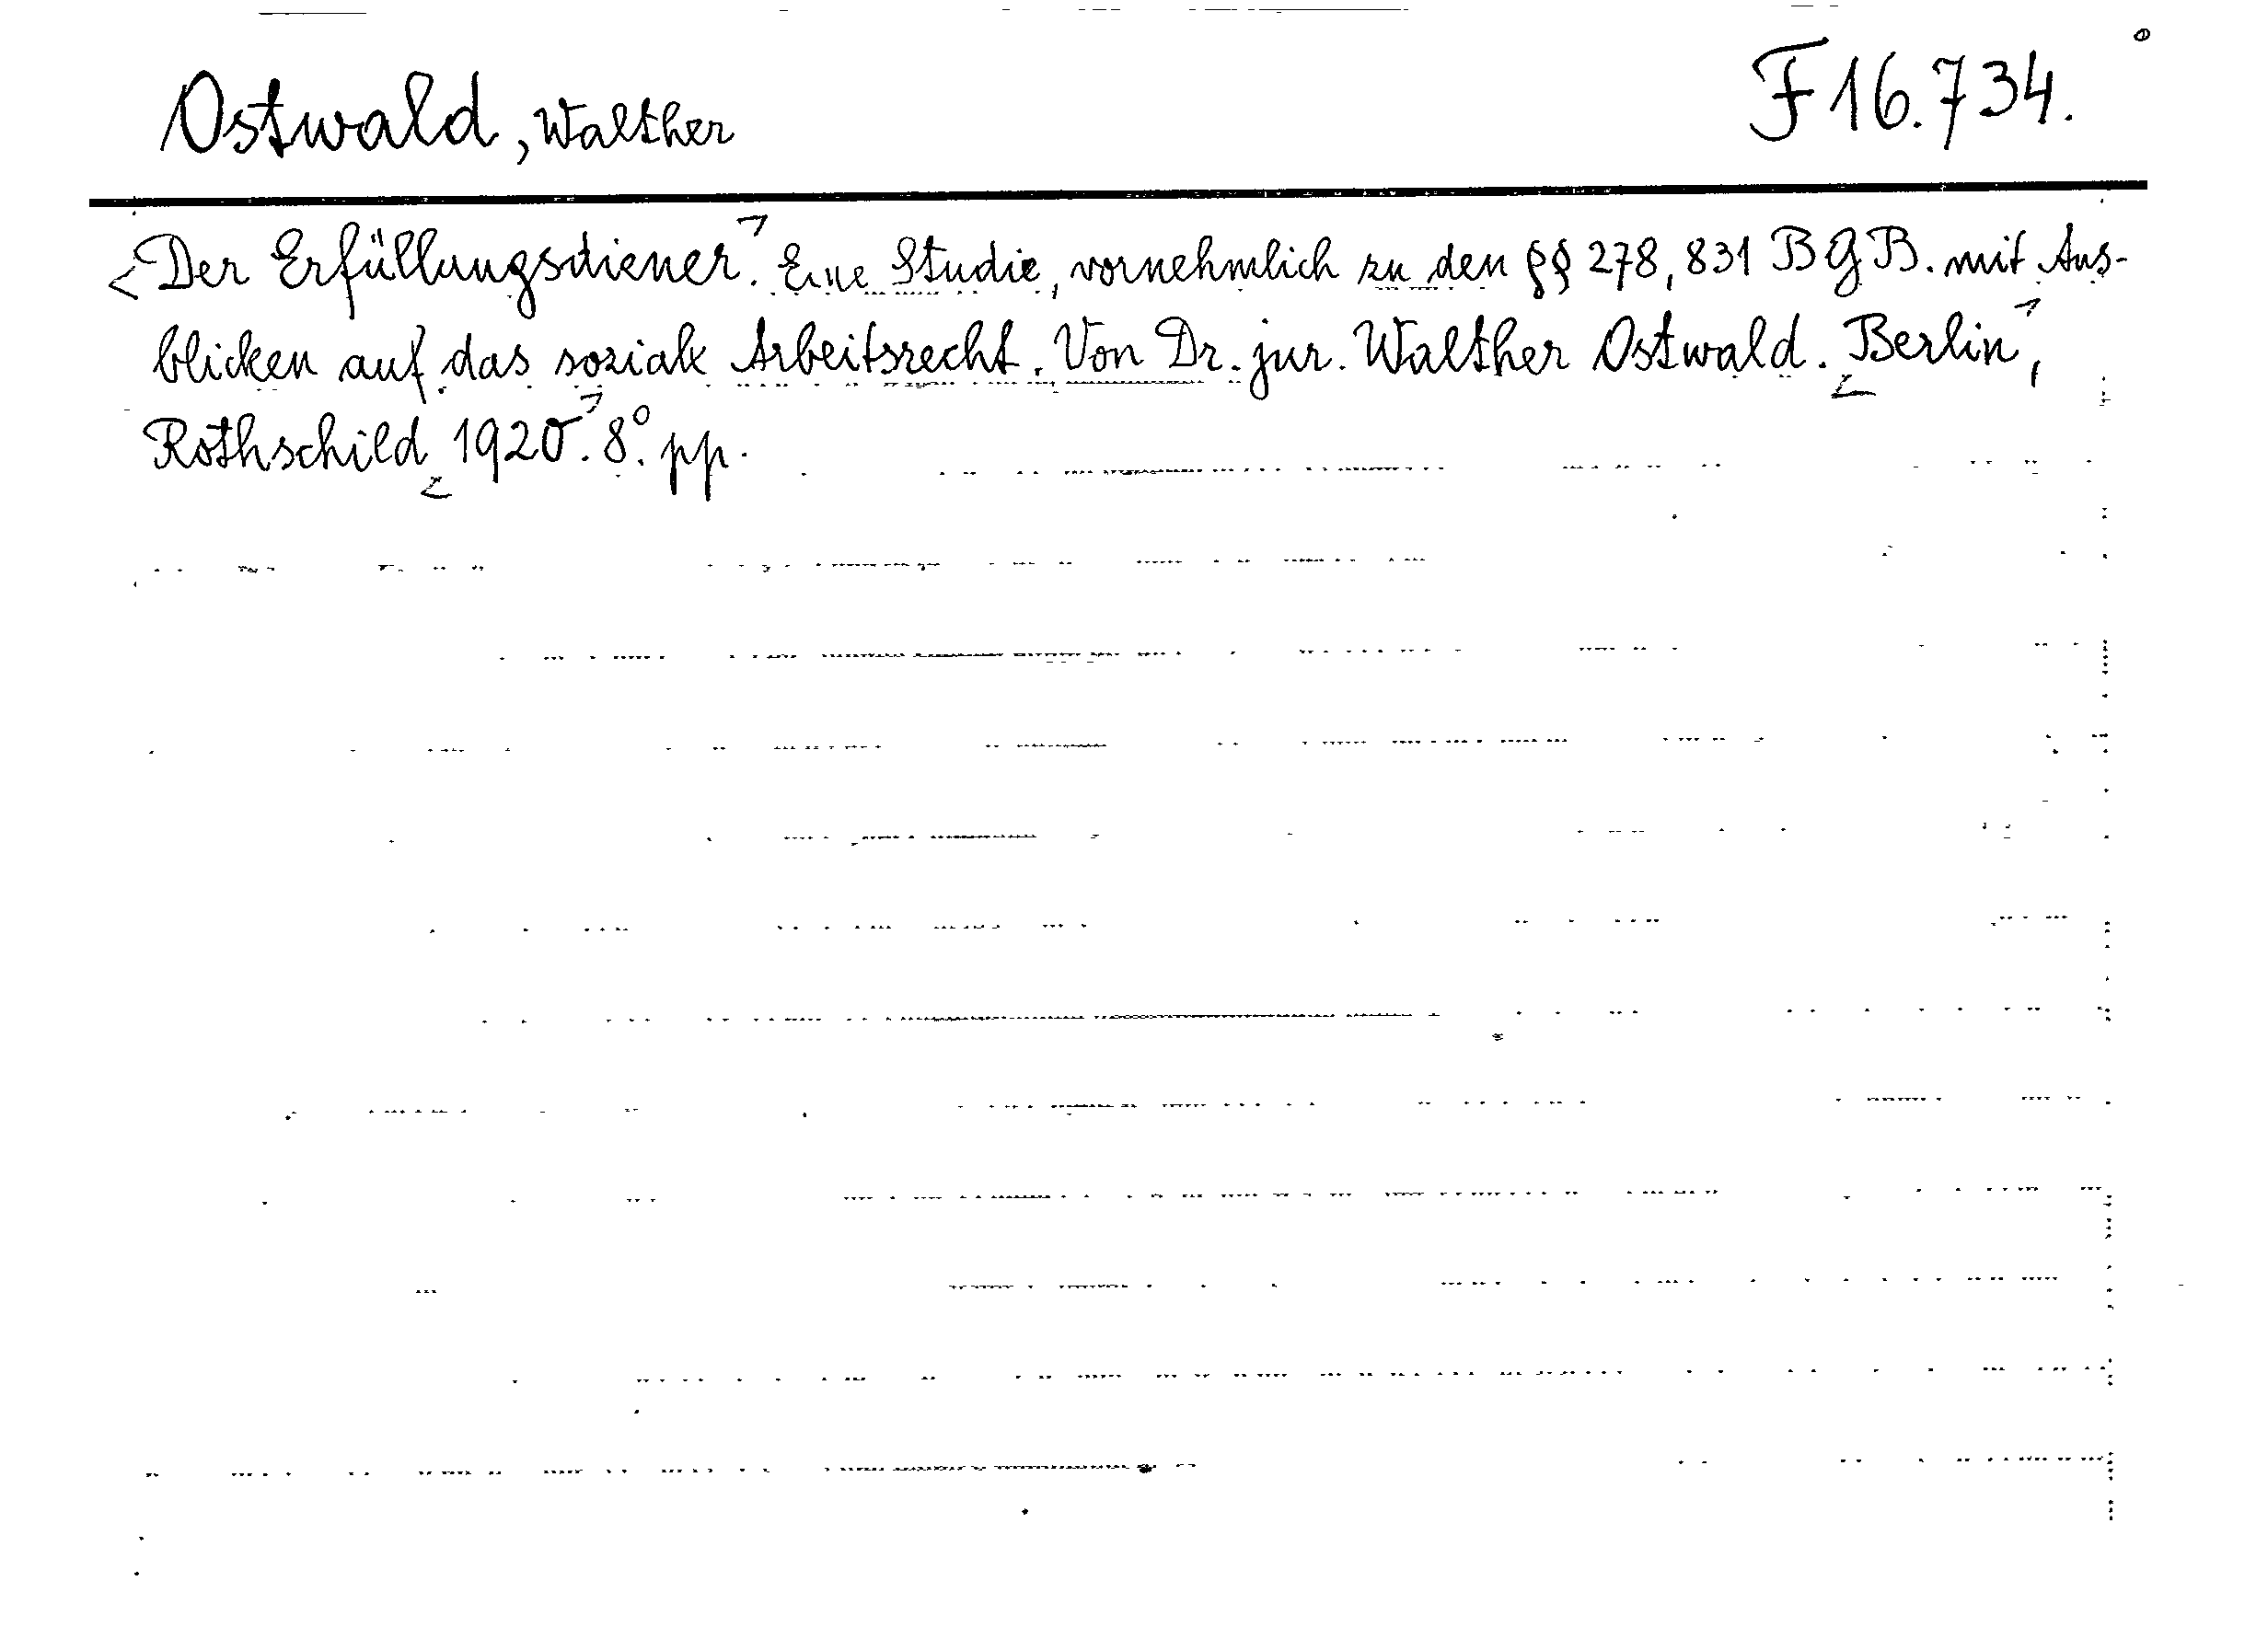 Ostwald, Walther F 16.734.
<Der Erfüllungsdiener.> Eine Studie, vornehmlich zu den §§ 278, 831 BGB. mit Aus-
blicken auf das soziale Arbeitsrecht. Von Dr. jur. Walther Ostwald. <Berlin>,
Rothschild <1920>. 8°. pp.